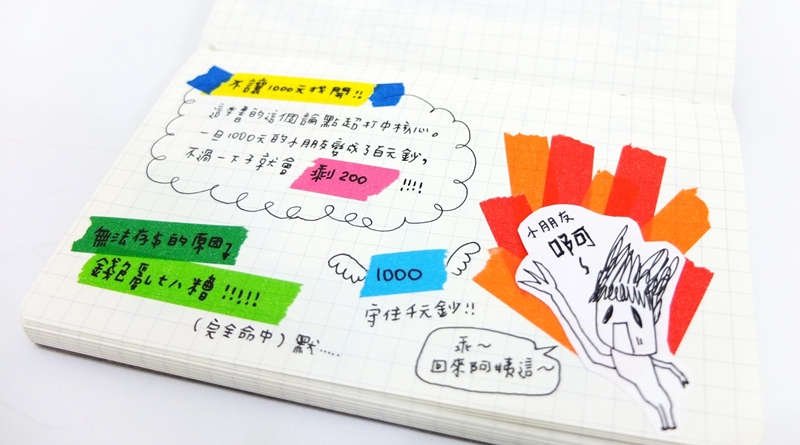 不讓1000元找開!!
這本書的這個論點超打中核心。
一旦1000元的小朋友變成了百元鈔,
不過一下子就會 剩200 !!!!
無法存$的原因↓
錢包亂七八糟!!!!!
(完全命中) 默.....
1000
守住千元鈔!!
小朋友
啊~
乖~
回來阿姨這~